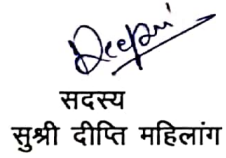 Deepti
सदस्य
सुश्री दीप्ति महिलांग